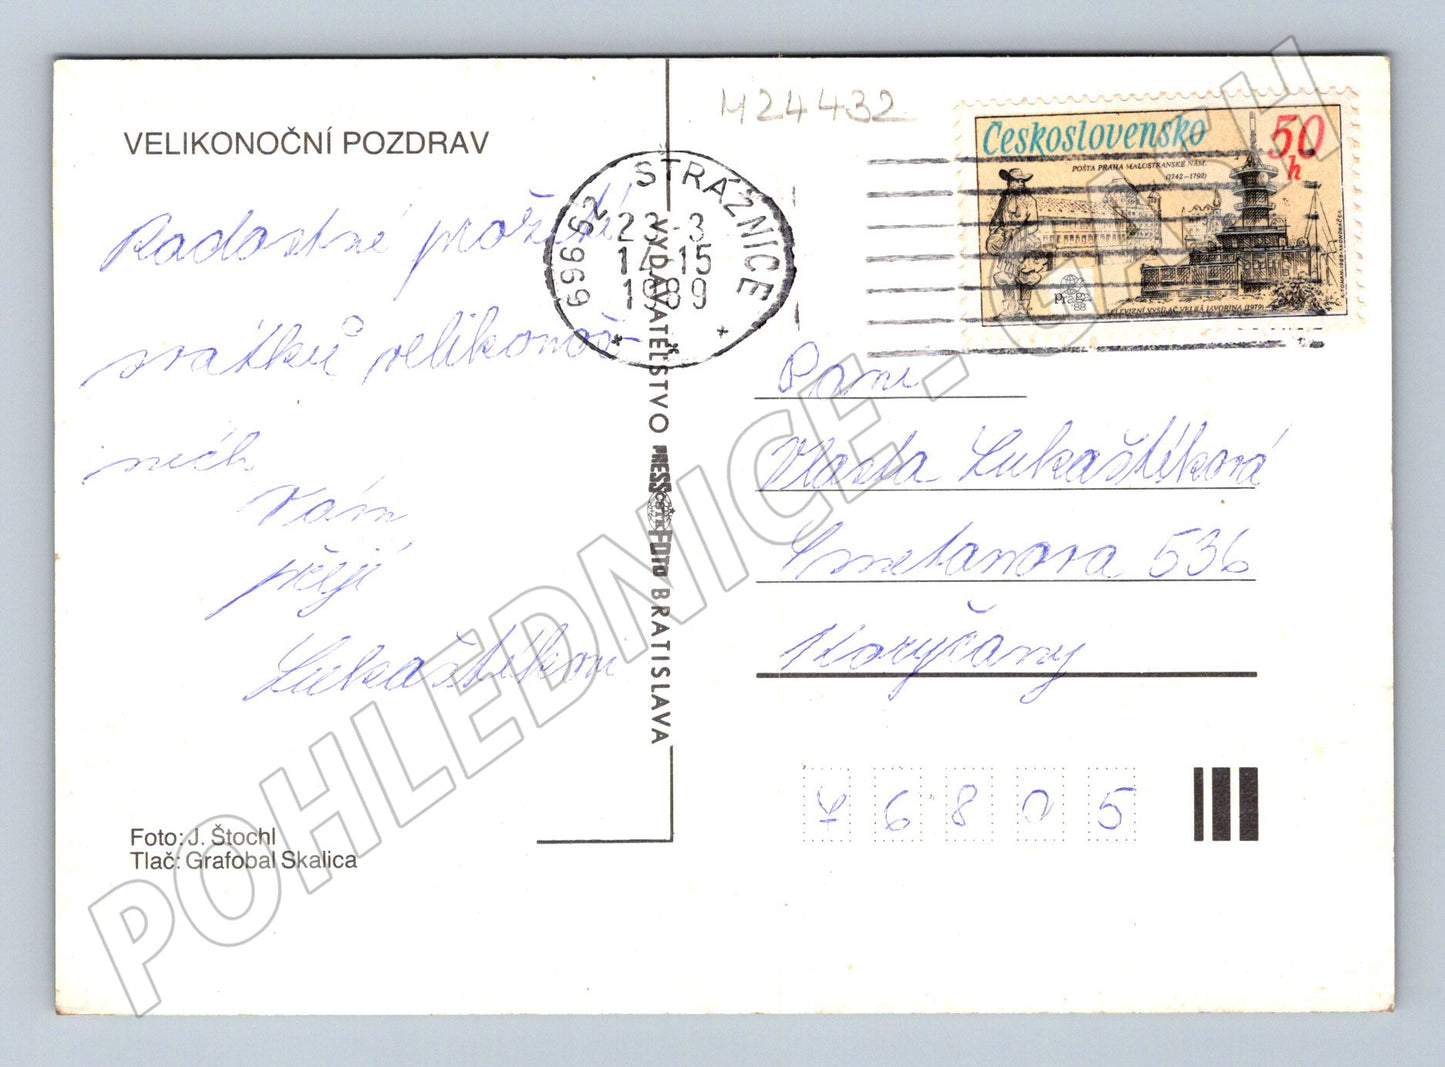 VELIKONOČNÍ POZDRAV
Radostné prožití
svátků velikonoč-
ních
Vám
přejí
Lukaštíkovi
Foto: J. Štochl
Tlač: Grafobal Skalica
VYDAVATEĽSTVO PRESSFOTO BRATISLAVA
M24432
STRÁŽNICE
696 62
23-3
14-15
1989
Československo
50
h
POŠTA PRAHA MALOSTRANSKÉ NÁM.
(1742-1792)
Praga
88
TELEVIZNÍ VYSÍLAČ VELKÁ JAVOŘINA (1979)
Paní
Vlasta Lukaštíková
Smetanova 536
Koryčany
76805
POHLEDNICE - CASH